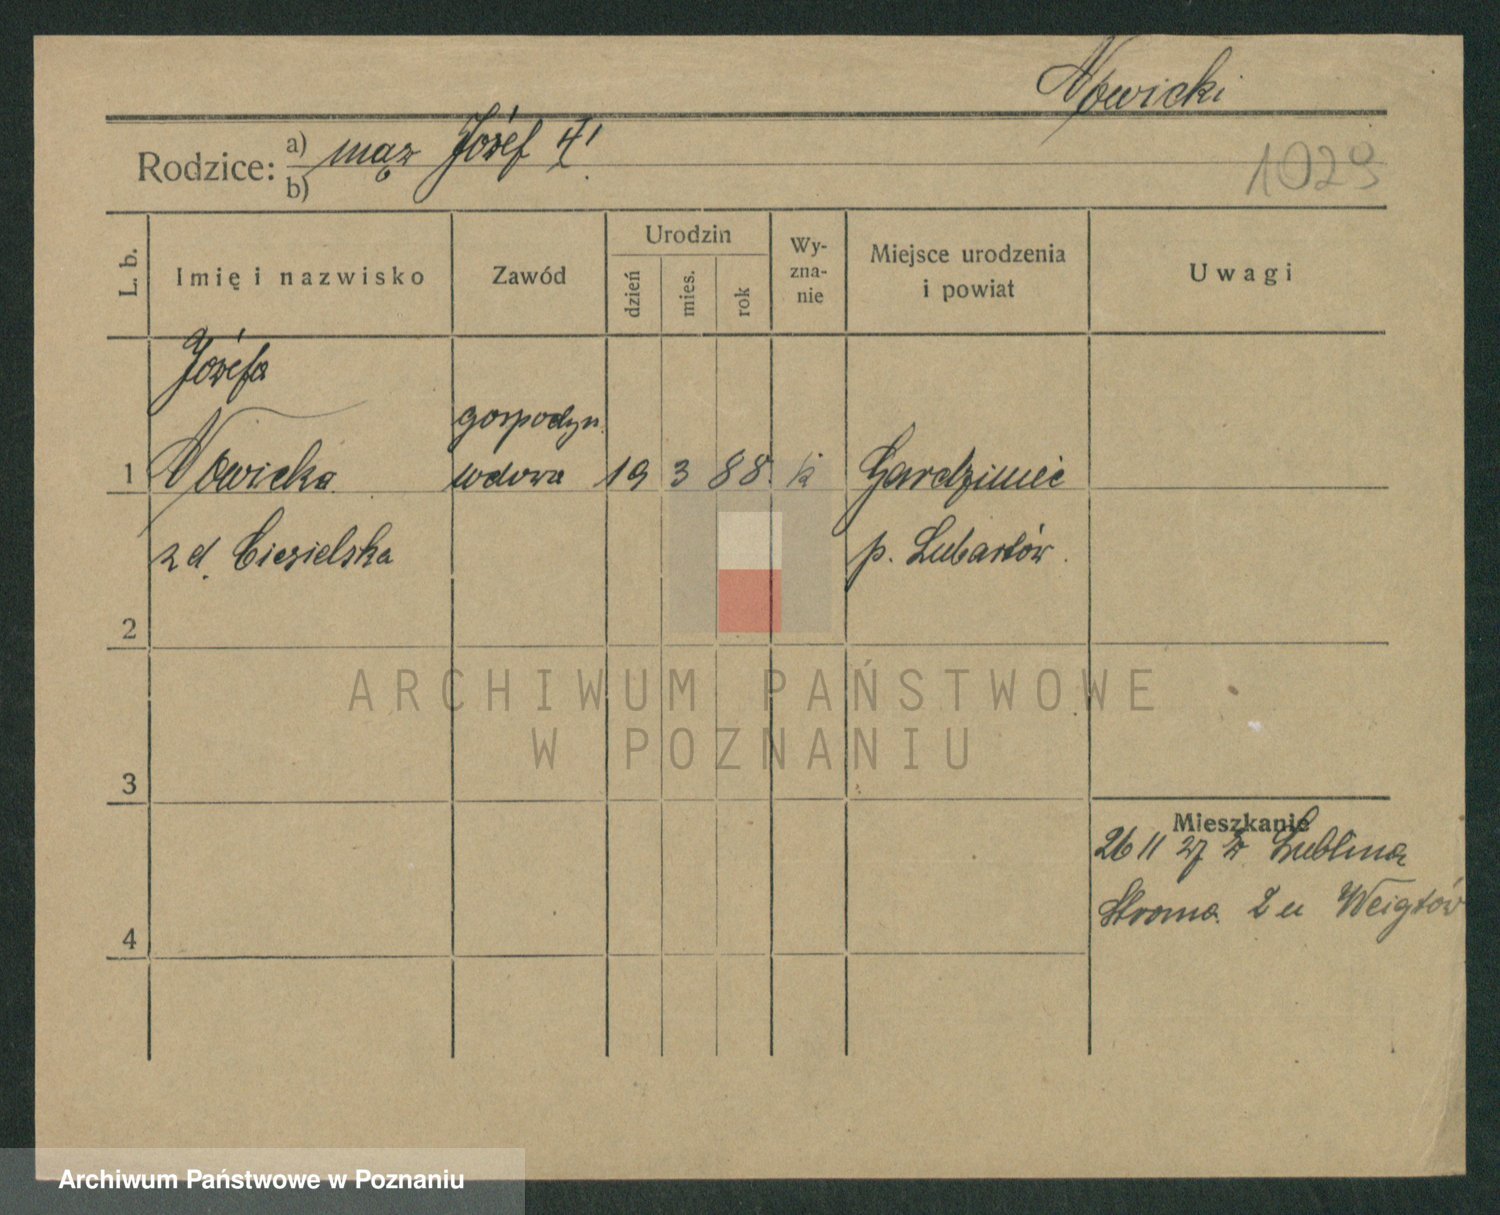 Nowicki
Rodzice: a) mąż Józef
b)
1029
L. b.
Imię i nazwisko
Zawód
Urodzin
dzień
mies.
rok
Wy-
zna-
nie
Miejsce urodzenia
i powiat
Uwagi
Józefa
gospodyn
1 Nowicka wdowa 19 3 88 k
z d. Ciesielska p. Lubartów
2
ARCHIWUM PAŃSTWOWE
W POZNANIU
3
Mieszkanie
26 11 27 z Lublina
Stroma 2 u Weigtów
4
Archiwum Państwowe w Poznaniu